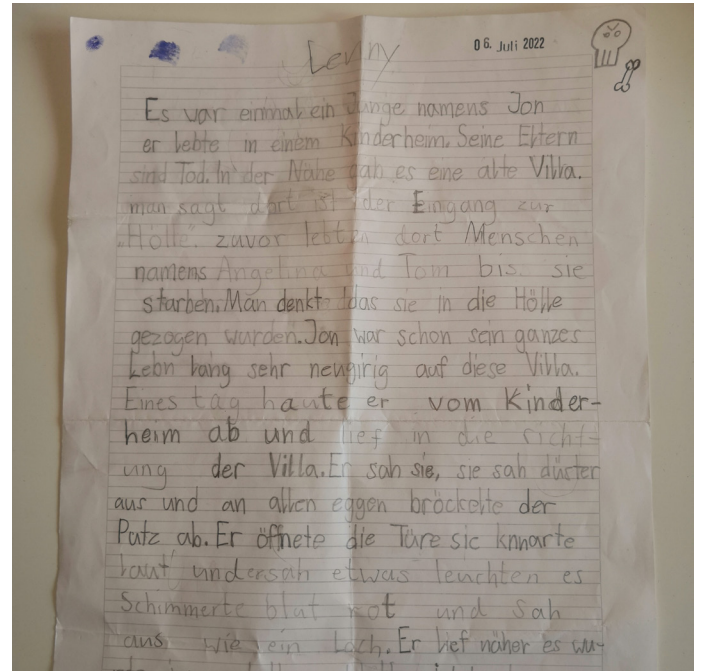 Lenny
06. Juli 2022
Es war einmhal ein Junge namens Jon
er lebte in einem Kinderheim. Seine Eltern
sind Tod. In der Nähe gab es eine alte Villa.
man sagt dort ist der Eingang zur
„Hölle“. zuvor lebten dort Menschen
namens Angelina und Tom bis sie
starben. Man denkt das sie in die Hölle
gezogen wurden. Jon war schon sein ganzes
Lebn lang sehr neugirig auf diese Villa.
Eines tag haute er vom Kinder-
heim ab und lief in die richt-
ung der Villa. Er sah sie, sie sah düster
aus und an allen eggen bröckelte der
Putz ab. Er öffnete die Türe sie knnarte
laut und er sah etwas leuchten es
Schimmerte blut rot und sah
aus wie ein Loch. Er lief näher es wu-